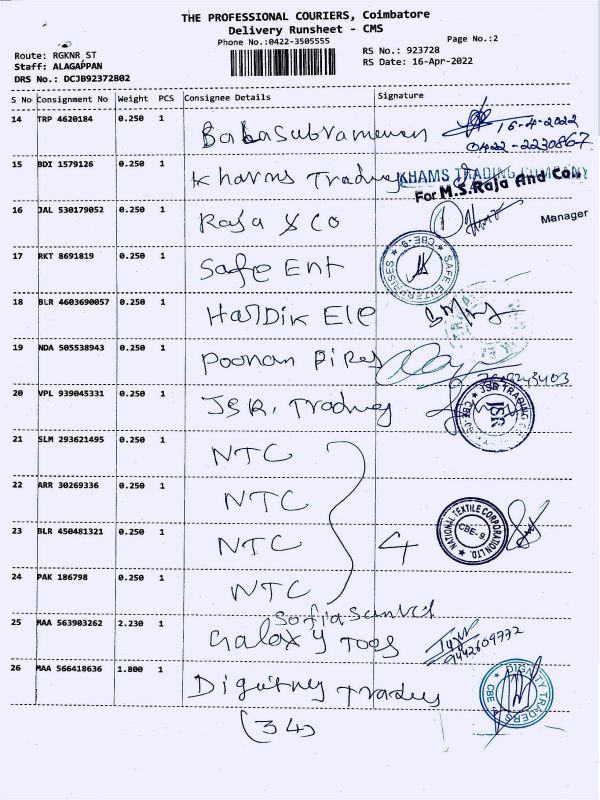 THE PROFESSIONAL COURIERS, Coimbatore
Delivery Runsheet - CMS
Phone No.:0422-3505555
Page No.:2
Route: RGKNR ST
RS No.: 923728
Staff: ALAGAPPAN
RS Date: 16-Apr-2022
DRS No.: DCJB92372802
S No Consignment No Weight PCS Consignee Details Signature
14 TRP 4620184 0.250 1 16-4-2022
0422-2230867
15 BDI 1579126 0.250 1 Khams Trading KHAMS TRADING COMPANY
For M.S.Raja And Co.
16 JAL 530179052 0.250 1 Raja & Co Manager
17 RKT 8691819 0.250 1 Safe Ent SAFE ENTERPRISES CBE-9
18 BLR 4603690057 0.250 1 Hardik Ele
19 NDA 505538943 0.250 1 Poonam
20 VPL 939045331 0.250 1 JSR. Trading JSR TRADING JSR
21 SLM 293621495 0.250 1 NTC
22 ARR 30269336 0.250 1 NTC
23 BLR 450481321 0.250 1 NTC 4 NATIONAL TEXTILE CORPORATION LTD. CBE-9
24 PAK 186798 0.250 1 NTC
25 MAA 563903262 2.230 1 Galaxy 9442609772
26 MAA 566418636 1.800 1 DIGNITY TRADERS CBE
(34)